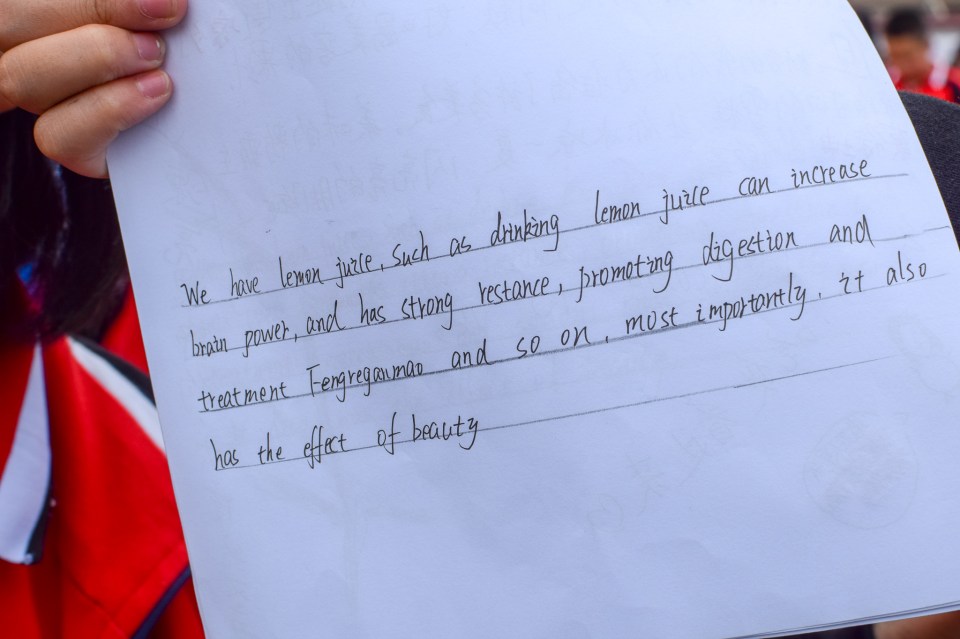 We have lemon juice, Such as drinking lemon juice can increase
brain power, and has strong restance, promoting digestion and
treatment Fengreganmao and so on, most importantly, it also
has the effect of beauty